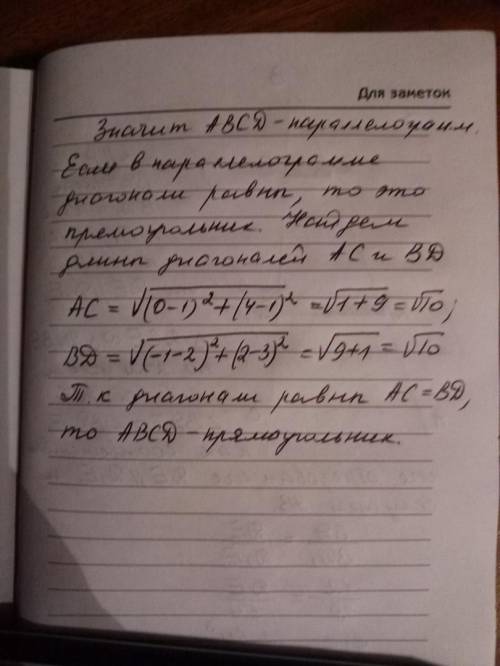 Для заметок
Значит ABCD - параллелограмм.
Если в параллелограмме
диагонали равны, то это
прямоугольник. Найдем
длины диагоналей AC и BD
AC = √((0-1)²+(4-1)²) = √(1+9) = √10;
BD = √((-1-2)²+(2-3)²) = √(9+1) = √10
Т.к диагонали равны AC=BD,
то ABCD - прямоугольник.